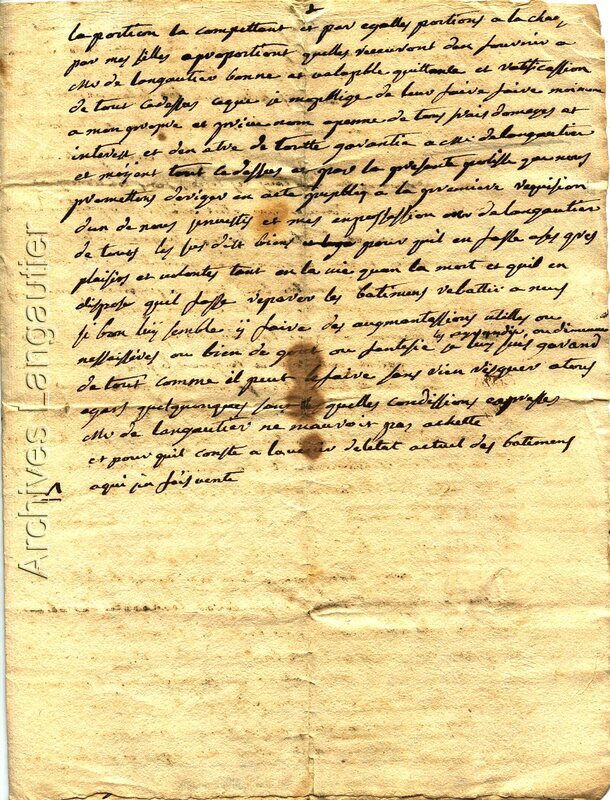 2
la portion la compettant et par egalles portions a la chac,
par mes filles a proportiont quelles reeuvront den fournir a
Mr de langautier bonne et valapble quittance et ratificassion
de tout cedessus ceque je mopblige de leur faire faire
a mon propre et privé nom apenne de tous frais domages et
interest et den etre de toutte garantie a Mr de langautier
et moi tout cedessus et par la presente polisse que nous
promettons deriger en acte grupblig a la premiere requision
dun de nous jnvestis et mes en possession Mr de langautier
de touts les sus dits biens pour quil en fasse a ses gres
plaisirs et volontes tant en la vie quan la mort et quil en
dispose quil fasse reparer les batimens rebattir a neus
si bon luy semble ÿ faire des augmentassions utilles ou
nessessives ou bien de gout ou fantesie je luy suis garand
les agrandir ou diminuer
de tout comme il peut le faire sans rien risquer a tous
egars quelquonques sans quelles condissions expresses
Mr de langautier ne mauroit pas achette
et pour quil conste a lavenir deletat actuel des batimens
aqui jai fais vente
Archives Langautier